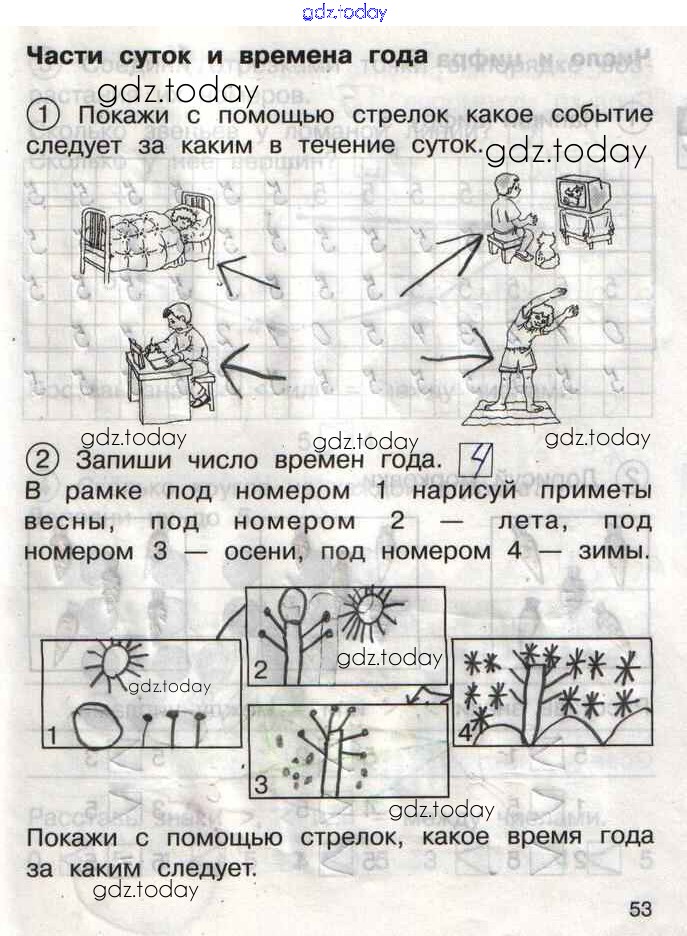 gdz.today
Части суток и времена года
gdz.today
1 Покажи с помощью стрелок какое событие
следует за каким в течение суток.
gdz.today
gdz.today
gdz.today
gdz.today
2 Запиши число времен года. 4
В рамке под номером 1 нарисуй приметы
весны, под номером 2 — лета, под
номером 3 — осени, под номером 4 — зимы.
gdz.today
2
gdz.today
1
4
3
gdz.today
Покажи с помощью стрелок, какое время года
за каким следует.
gdz.today
53